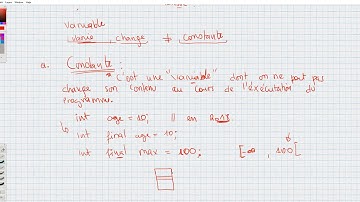 variable
varie, change ≠ Constante
a. Constante :
* c'est une "variable" dont on ne peut pas
change son contenu au cours de l'exécution du
programme.
int age = 10; // en 2018
int final age = 10;
int final max = 100; [-∞, 100[